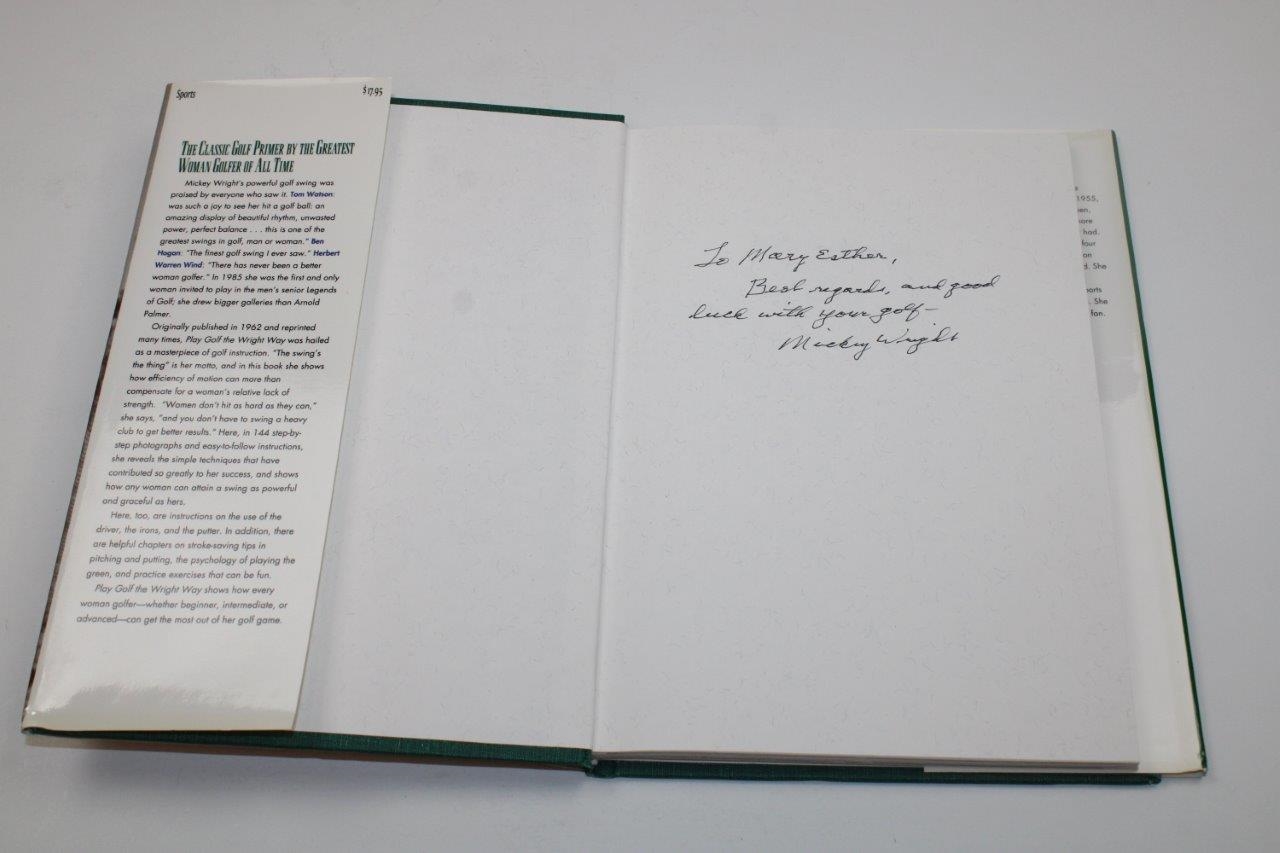 Sports
$17.95
THE CLASSIC GOLF PRIMER BY THE GREATEST
WOMAN GOLFER OF ALL TIME
Mickey Wright's powerful golf swing was
praised by everyone who saw it. Tom Watson:
was such a joy to see her hit a golf ball: an
amazing display of beautiful rhythm, unwasted
power, perfect balance . . . this is one of the
greatest swings in golf, man or woman." Ben
Hogan: "The finest golf swing I ever saw." Herbert
Warren Wind: "There has never been a better
woman golfer." In 1985 she was the first and only
woman invited to play in the men's senior Legends
of Golf; she drew bigger galleries than Arnold
Palmer.
Originally published in 1962 and reprinted
many times, Play Golf the Wright Way was hailed
as a masterpiece of golf instruction. "The swing's
the thing" is her motto, and in this book she shows
how efficiency of motion can more than
compensate for a woman's relative lack of
strength. "Women don't hit as hard as they can,"
she says, "and you don't have to swing a heavy
club to get better results." Here, in 144 step-by-
step photographs and easy-to-follow instructions,
she reveals the simple techniques that have
contributed so greatly to her success, and shows
how any woman can attain a swing as powerful
and graceful as hers.
Here, too, are instructions on the use of the
driver, the irons, and the putter. In addition, there
are helpful chapters on stroke-saving tips in
pitching and putting, the psychology of playing the
green, and practice exercises that can be fun.
Play Golf the Wright Way shows how every
woman golfer—whether beginner, intermediate, or
advanced—can get the most out of her golf game.
To Mary Esther,
Best regards, and good
luck with your golf—
Mickey Wright
1955,
had.
She
She
fan.